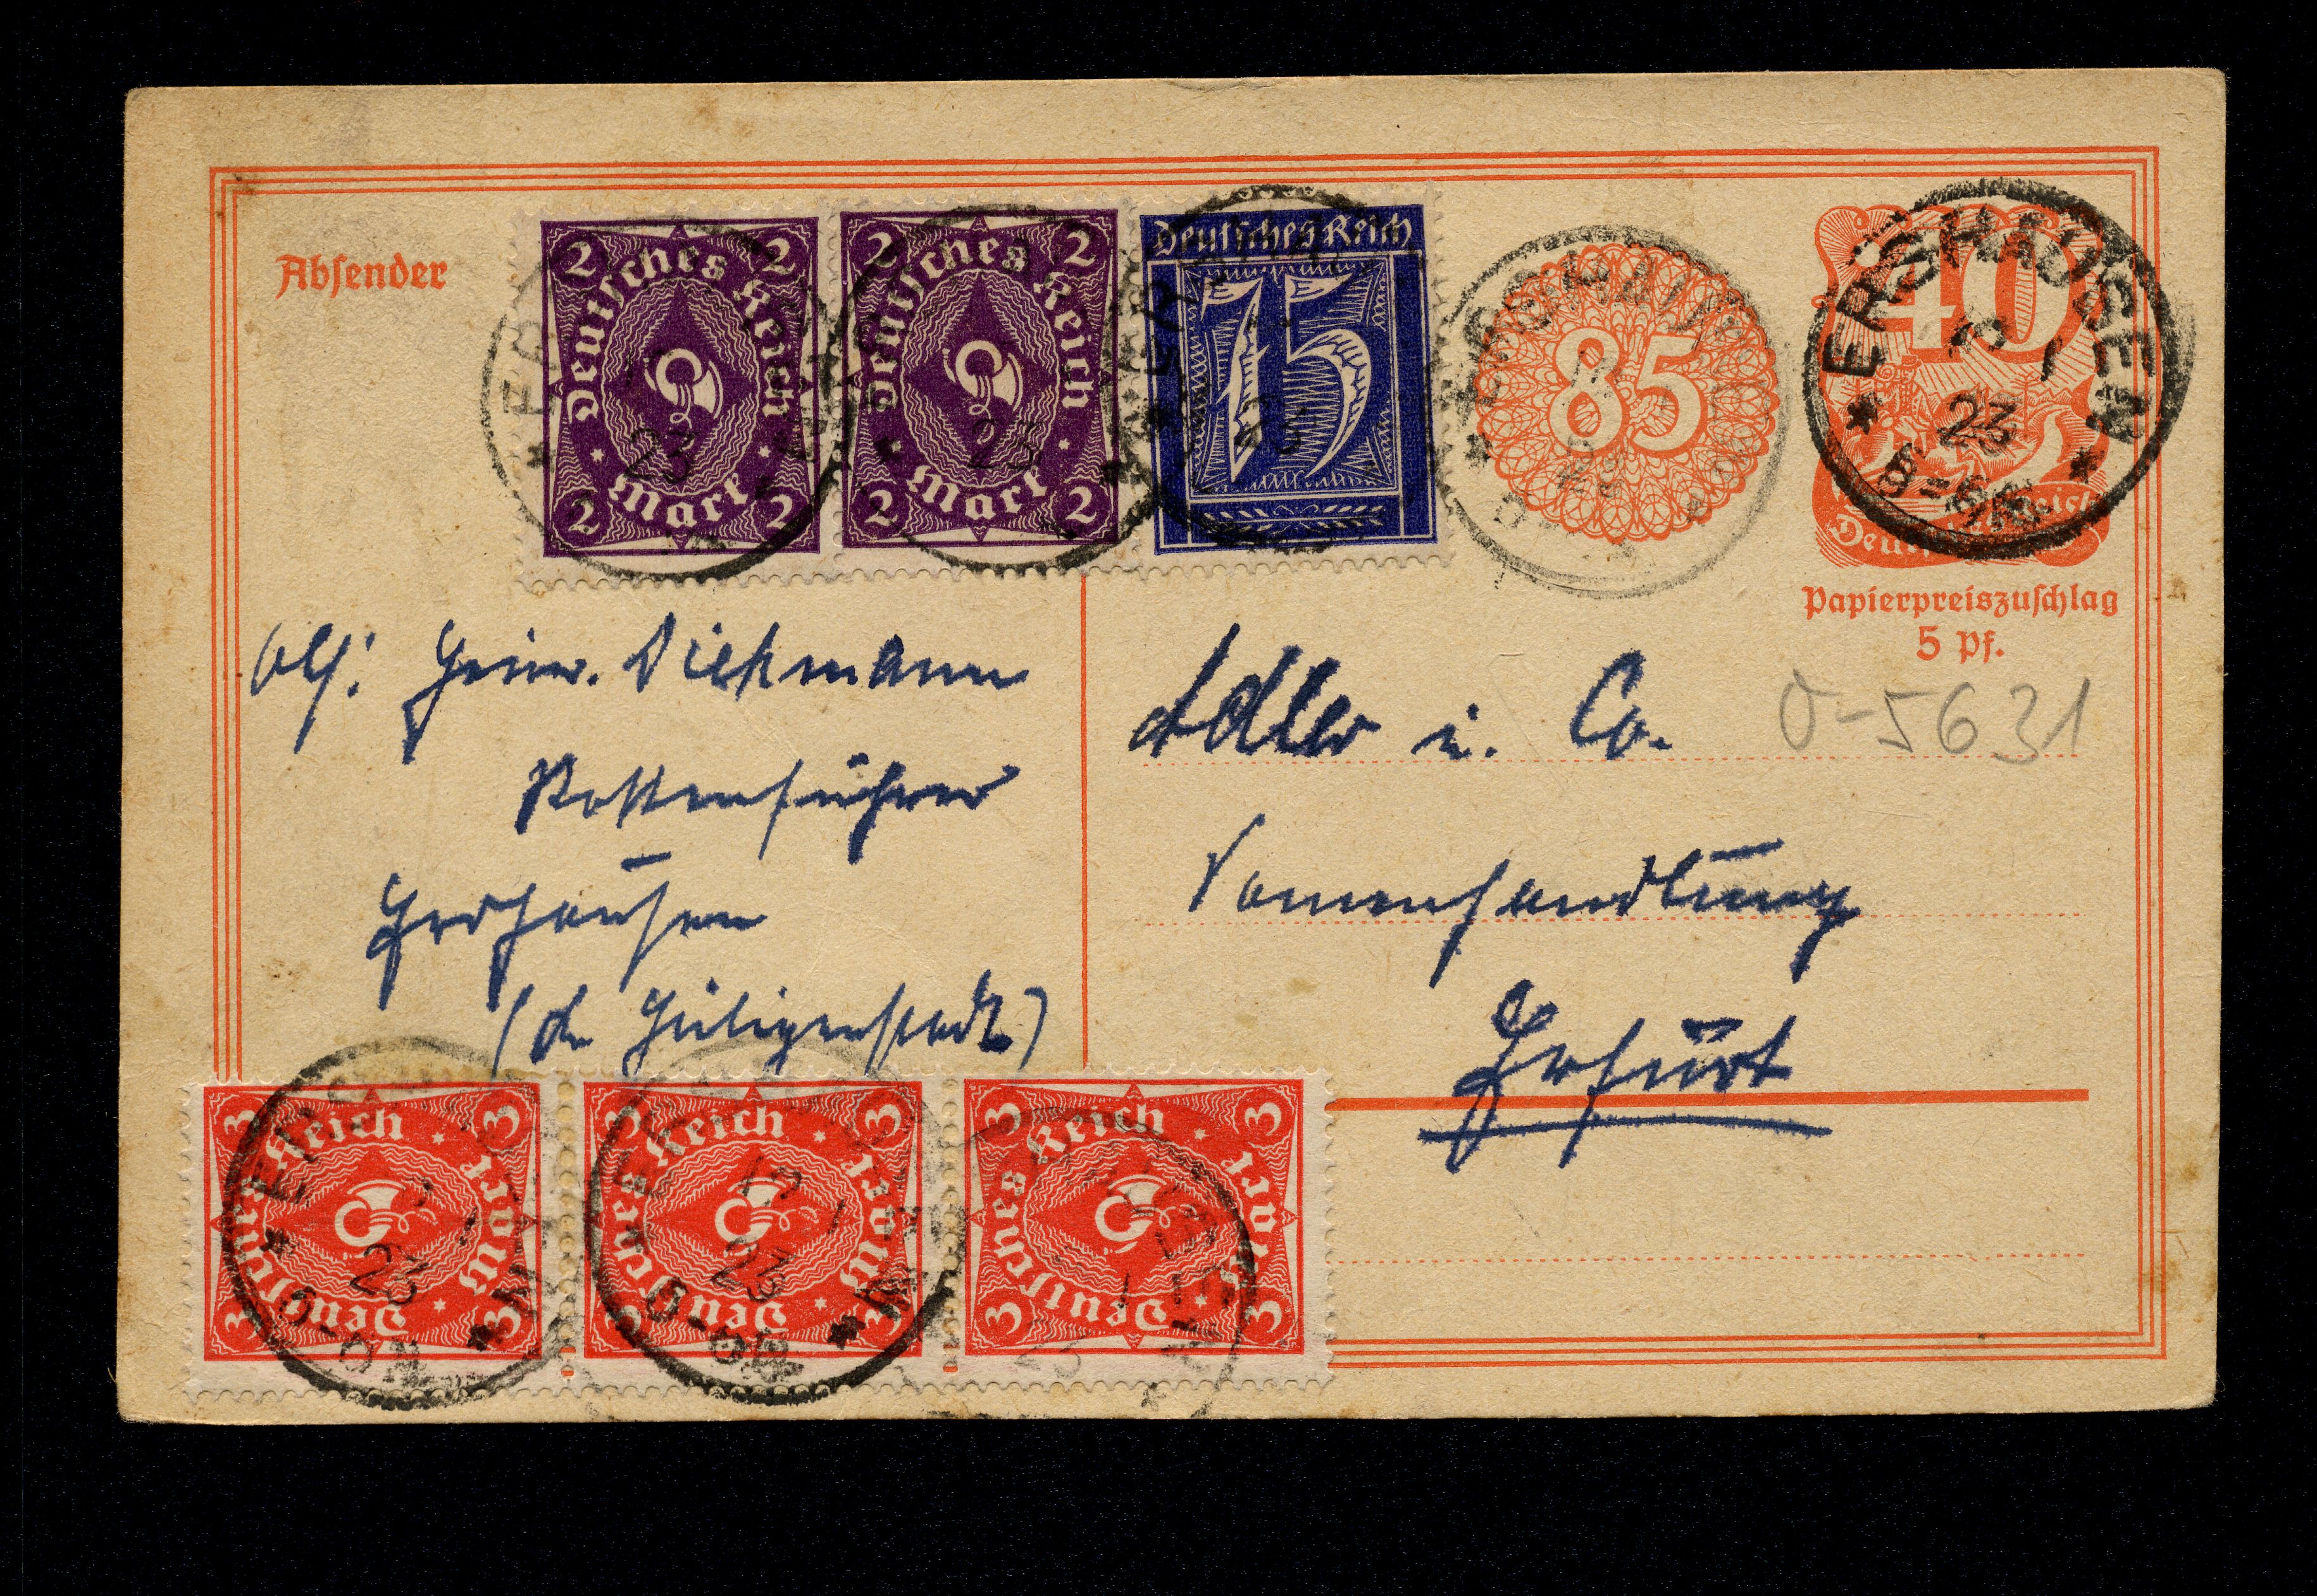 Absender
2 2
Deutsches Reich
Mark
2 2
2 2
Deutsches Reich
Mark
2 2
Deutsches Reich
15
85
40
Deutsches Reich
ERSHAUSEN
1
23
Papierpreiszuschlag
5 Pf.
O-5631
Abs: Heinr. Diekmann
Rottenführer
Ershausen
Heiligenstadt)
Adler u. Co.
Samenhandlung
Erfurt
3 3
Deutsches Reich
Mark
3 3
23
3 3
Deutsches Reich
Mark
3 3
12 1
23
3 3
Deutsches Reich
Mark
3 3